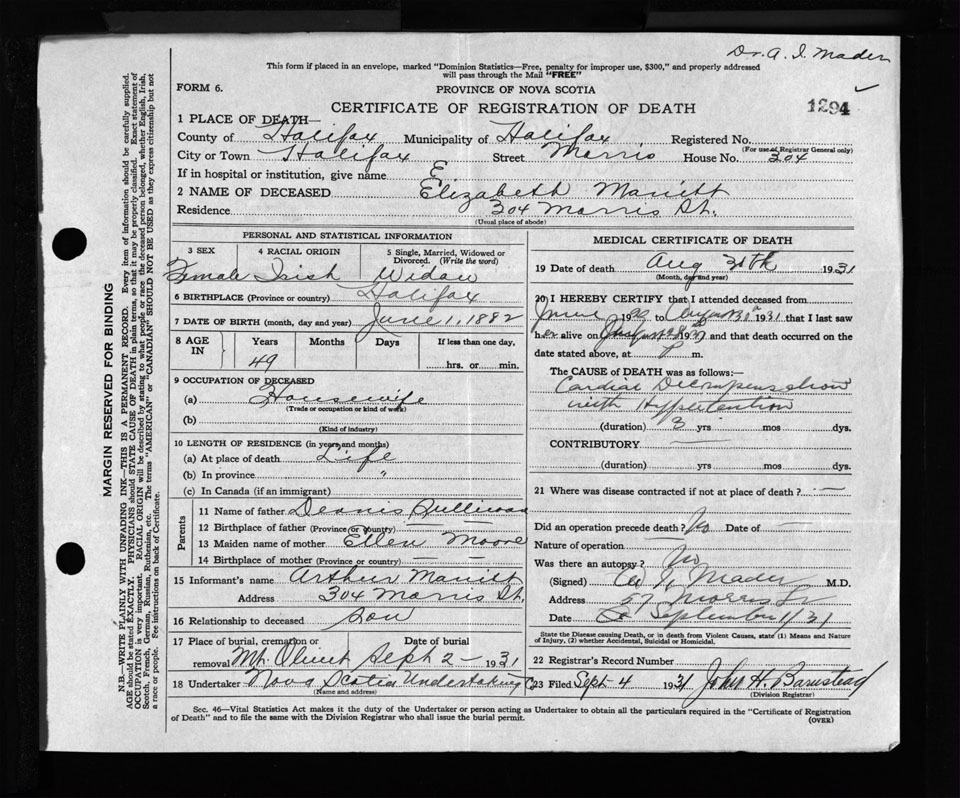 Dr. A. I. Mader
This form if placed in an envelope, marked "Dominion Statistics—Free, penalty for improper use, $300," and properly addressed
will pass through the Mail "FREE"
FORM 6.
PROVINCE OF NOVA SCOTIA
CERTIFICATE OF REGISTRATION OF DEATH
1294
1 PLACE OF DEATH—
County of Halifax Municipality of Halifax Registered No.
(For use of Registrar General only)
City or Town Halifax Street Morris House No. 304
If in hospital or institution, give name E
2 NAME OF DECEASED Elizabeth Marriott
Residence 304 Morris St.
(Usual place of abode)
PERSONAL AND STATISTICAL INFORMATION
3 SEX 4 RACIAL ORIGIN 5 Single, Married, Widowed or Divorced. (Write the word)
Female Irish Widow
6 BIRTHPLACE (Province or country) Halifax
7 DATE OF BIRTH (month, day and year) June 1, 1882
8 AGE IN Years Months Days If less than one day,
49 hrs. or min.
9 OCCUPATION OF DECEASED
(a) Housewife
(Trade or occupation or kind of work)
(b)
(Kind of industry)
10 LENGTH OF RESIDENCE (in years and months)
(a) At place of death Life
(b) In province "
(c) In Canada (if an immigrant)
Parents
11 Name of father Dennis Sullivan
12 Birthplace of father (Province or country)
13 Maiden name of mother Ellen Moore
14 Birthplace of mother (Province or country)
15 Informant's name Arthur Marriott
Address 304 Morris St.
16 Relationship to deceased Son
17 Place of burial, cremation or removal Mt. Olivet Date of burial Sept 2 - 1931
18 Undertaker Nova Scotia Undertaking Co
(Name and address)
MEDICAL CERTIFICATE OF DEATH
19 Date of death Aug 1931
(Month, day and year)
20 I HEREBY CERTIFY that I attended deceased from
June 19 to 1931 that I last saw
her alive on 19 and that death occurred on the
date stated above, at P m.
The CAUSE of DEATH was as follows:—
Cardiac Decompensation
with Hypertention
(duration) 3 yrs mos dys.
CONTRIBUTORY
(duration) yrs mos dys.
21 Where was disease contracted if not at place of death?
Did an operation precede death? No Date of
Nature of operation
Was there an autopsy? No
(Signed) Mader M.D.
Address 57 Morris St
Date September 1/31
State the Disease causing Death, or in death from Violent Causes, state (1) Means and Nature
of Injury, (2) whether Accidental, Suicidal or Homicidal.
22 Registrar's Record Number
23 Filed Sept 4 1931 John H. Barnstead
(Division Registrar)
Sec. 46—Vital Statistics Act makes it the duty of the Undertaker or person acting as Undertaker to obtain all the particulars required in the "Certificate of Registration
of Death" and to file the same with the Division Registrar who shall issue the burial permit.
(OVER)
MARGIN RESERVED FOR BINDING
N.B.—WRITE PLAINLY WITH UNFADING INK—THIS IS A PERMANENT RECORD. Every item of information should be carefully supplied.
AGE should be stated EXACTLY. PHYSICIANS should STATE CAUSE OF DEATH in plain terms, so that it may be properly classified. Exact statement of
OCCUPATION is very important. RACIAL ORIGIN will be described by stating to what people or race the deceased person belonged, whether English, Irish,
Scotch, French, German, Russian, Ruthenian, etc. The terms "AMERICAN" or "CANADIAN" SHOULD NOT BE USED as they express citizenship but not
a race or people. See instructions on back of Certificate.